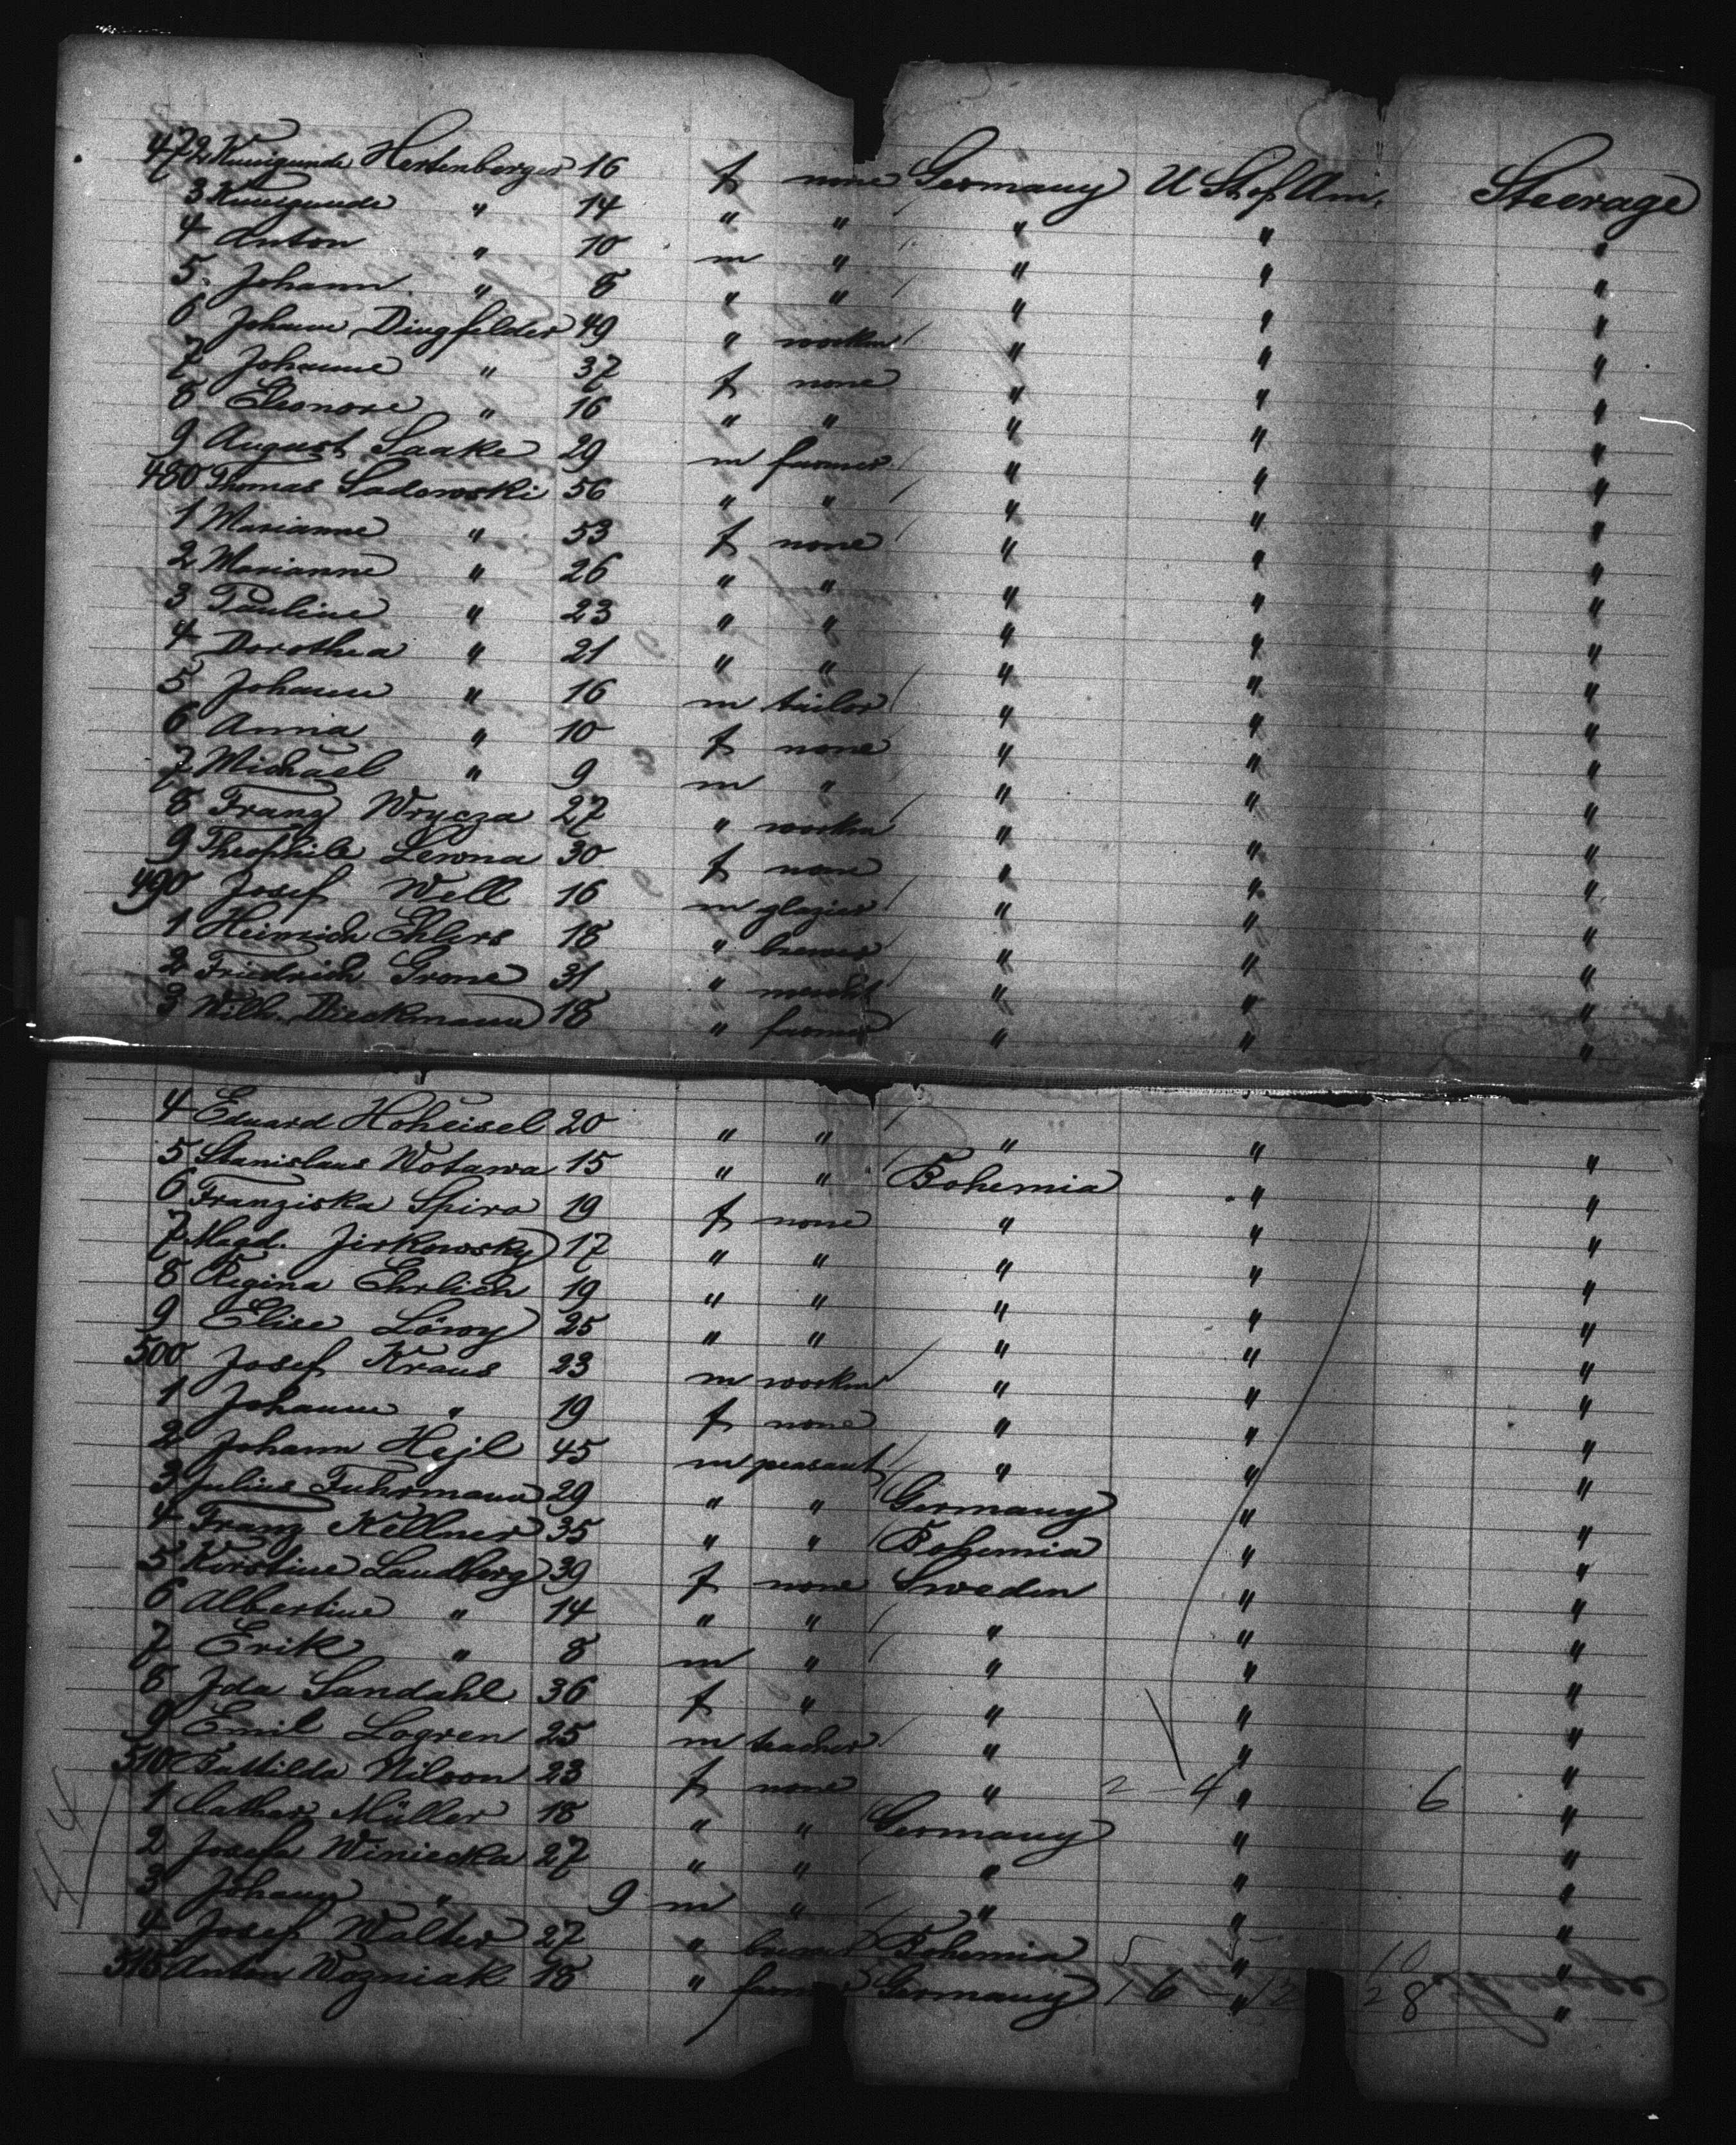 472 Kunigunde Hertenberger 16 f none Germany U St of Am. Steerage
3 Kunigunde " 14 " " " " "
4 Anton " 10 m " " " "
5 Johann " 8 " " " " "
6 Johann Dingfelder 49 " workm " " "
7 Johanne " 37 f none " " "
8 Eleonore " 16 " " " " "
9 August Saake 29 m farmer " " "
480 Thomas Sadowski 56 " " " " "
1 Marianne " 53 f none " " "
2 Marianne " 26 " " " " "
3 Pauline " 23 " " " " "
4 Dorothea " 21 " " " " "
5 Johann " 16 m tailor " " "
6 Anna " 10 f none " " "
7 Michael " 9 m " " " "
8 Franz Wrycza 27 " workm " " "
9 Theophila Lewna 30 f none " " "
490 Josef Well 16 m glazier " " "
1 Heinrich Ehlers 18 " " " "
2 Friedrich Grone 31 " " " "
3 Wilh. Dieckmann 18 " farmer " " "
4 Eduard Hoheisel 20 " " " " "
5 Stanislaus Wotawa 15 " " Bohemia " "
6 Franziska Spira 19 f none " " "
7 Magd. Jirkowsky 17 " " " " "
8 Regina Ehrlich 19 " " " " "
9 Elise Löwy 25 " " " " "
500 Josef Kraus 23 m workm " " "
1 Johanne " 19 f none " " "
2 Johann Hejl 45 m peasant " " "
3 Julius Fuhrmann 29 " " Germany " "
4 Franz Kellner 35 " " Bohemia " "
5 Kristine Landberg 39 f none Sweden " "
6 Albertine " 14 " " " " "
7 Erik " 8 m " " " "
8 Ida Sandahl 36 f " " " "
9 Emil Logren 25 m teacher " " "
510 Bathilda Nilsson 23 f none " 2 - 4 " 6 "
1 Cathar. Müller 18 " " Germany " "
2 Josefa Winiecka 27 " " " " "
3 Johann " 9 m " " " "
4 Josef Walter 27 " Bohemia 5 " 10 "
515 Anton Wozniak 18 " farmer Germany 16 " 12 28 "